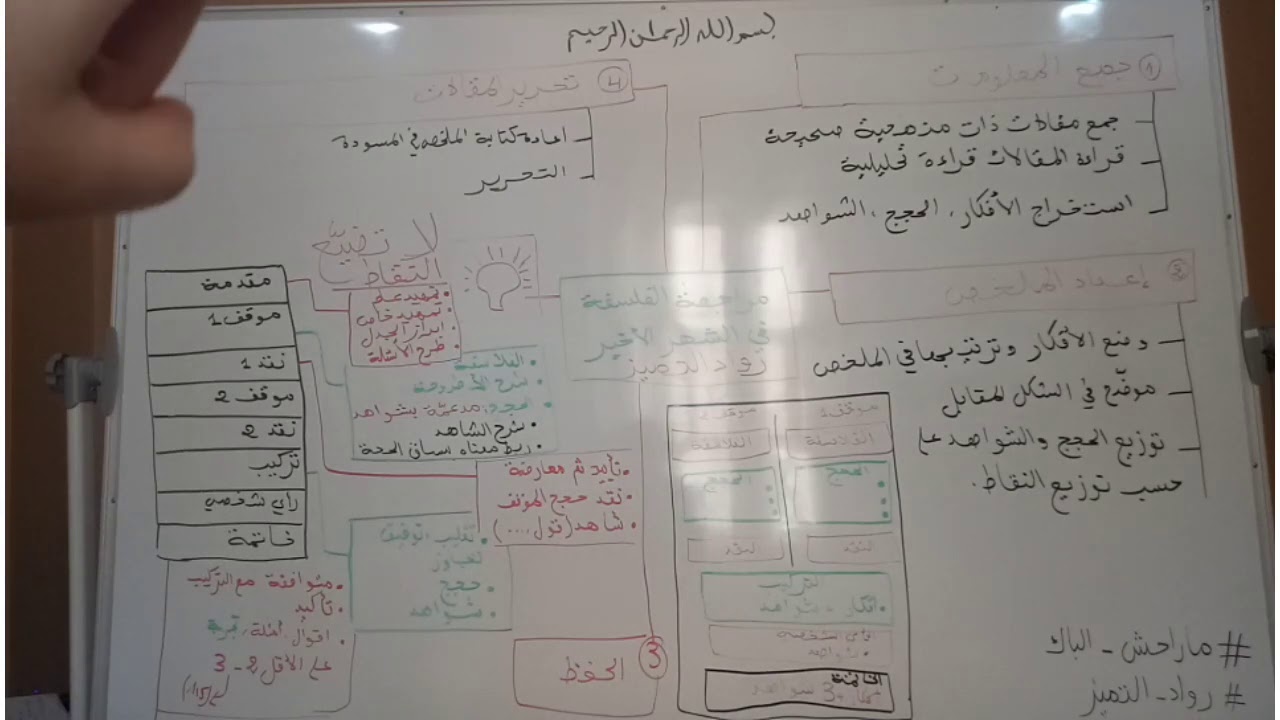 بسم الله الرحمان الرحيم
① جمع المعلومات
جمع مقالات ذات منهجية صحيحة
قراءة المقالات قراءة تحليلية
استخراج الأفكار، الحجج، الشواهد
② إعداد الملخص
وضع الأفكار وترتيبها في الملخص
موضّع في الشكل المقابل
توزيع الحجج والشواهد على
حسب توزيع النقاط.
مراجعة الفلسفة
في الشهر الأخير
رواد التميز
④ تحرير المقالات
اعادة كتابة الملخص في المسودة
التحرير
لا تضيّع
النقاط
مقدمة
موقف 1
نقد 1
موقف 2
نقد 2
تركيب
رأي شخصي
خاتمة
• تمهيد عام
• تمهيد خاص
• ابراز الجدل
• طرح الأسئلة
• الفلاسفة
• شرح الأطروحة
• الحجج، مدعمة بشواهد
• شرح الشاهد
• تأييد ثم معارضة
• نقد حجج الموقف
• شاهد (قول ....)
• تغليب، توفيق
تجاوز
حجج •
شواهد •
• متوافقة مع التركيب
• تأكيد
• اقوال، أمثلة، تجربة
على الأقل 2 - 3
③ الحفظ
موقف 1
موقف 2
الفلاسفة
الفلاسفة
الحجج
الحجج
النقد
النقد
التركيب
• أفكار + شواهد
رأي شخصي
• شواهد
الخاتمة
3 شواهد
# ماراحش - الباك
# رواد - التميز